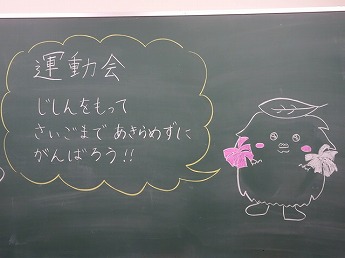 運動会
じしんをもって
さいごまで あきらめずに
がんばろう!!